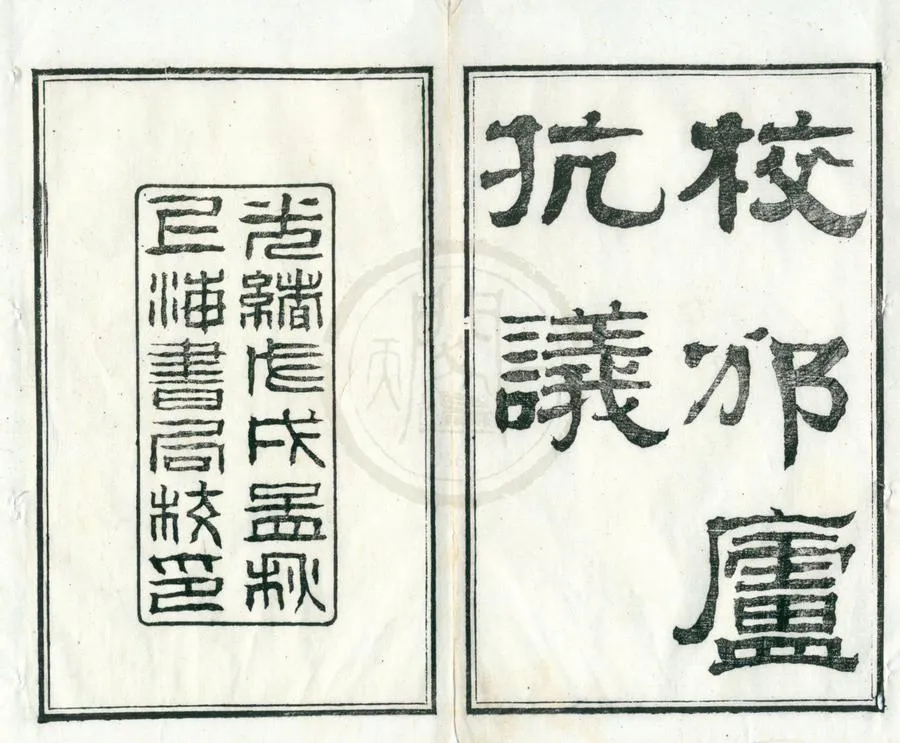 校邠廬
抗議
光緒戊戌孟秋
上海書局校印